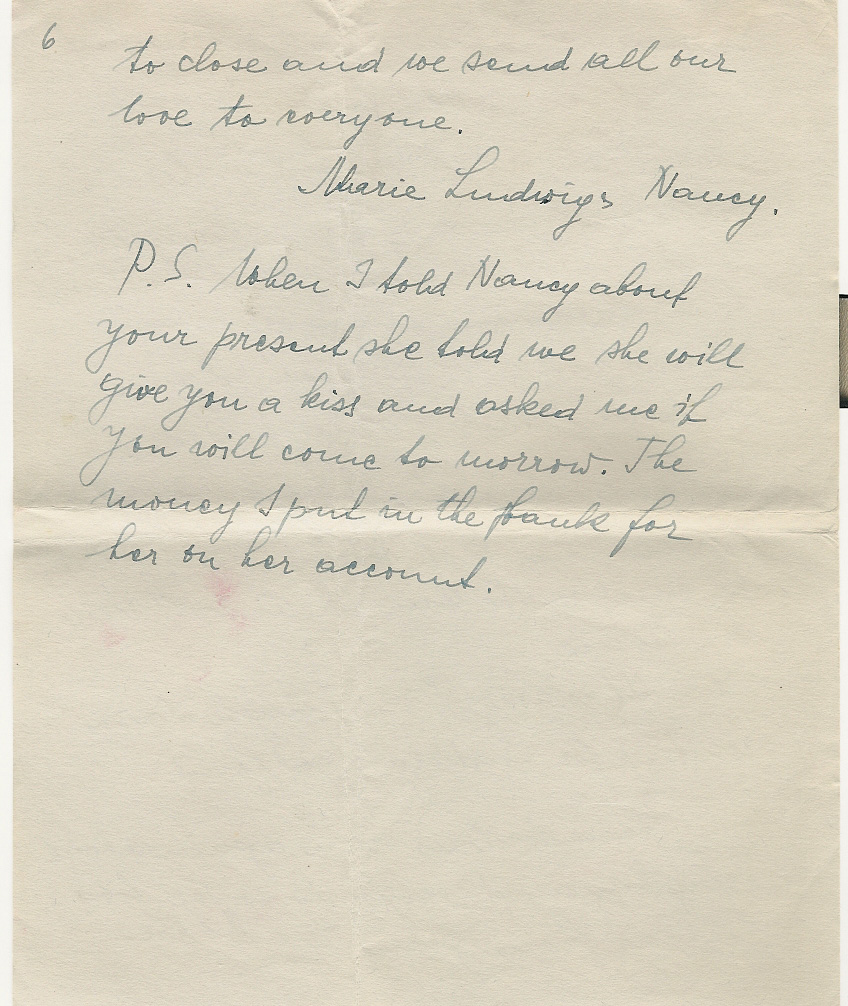 6
to close and we send all our
love to everyone.
Marie Ludwig & Nancy.
P.S. When I told Nancy about
your present she told me she will
give you a kiss and asked me if
you will come to morrow. The
money I put in the bank for
her on her account.